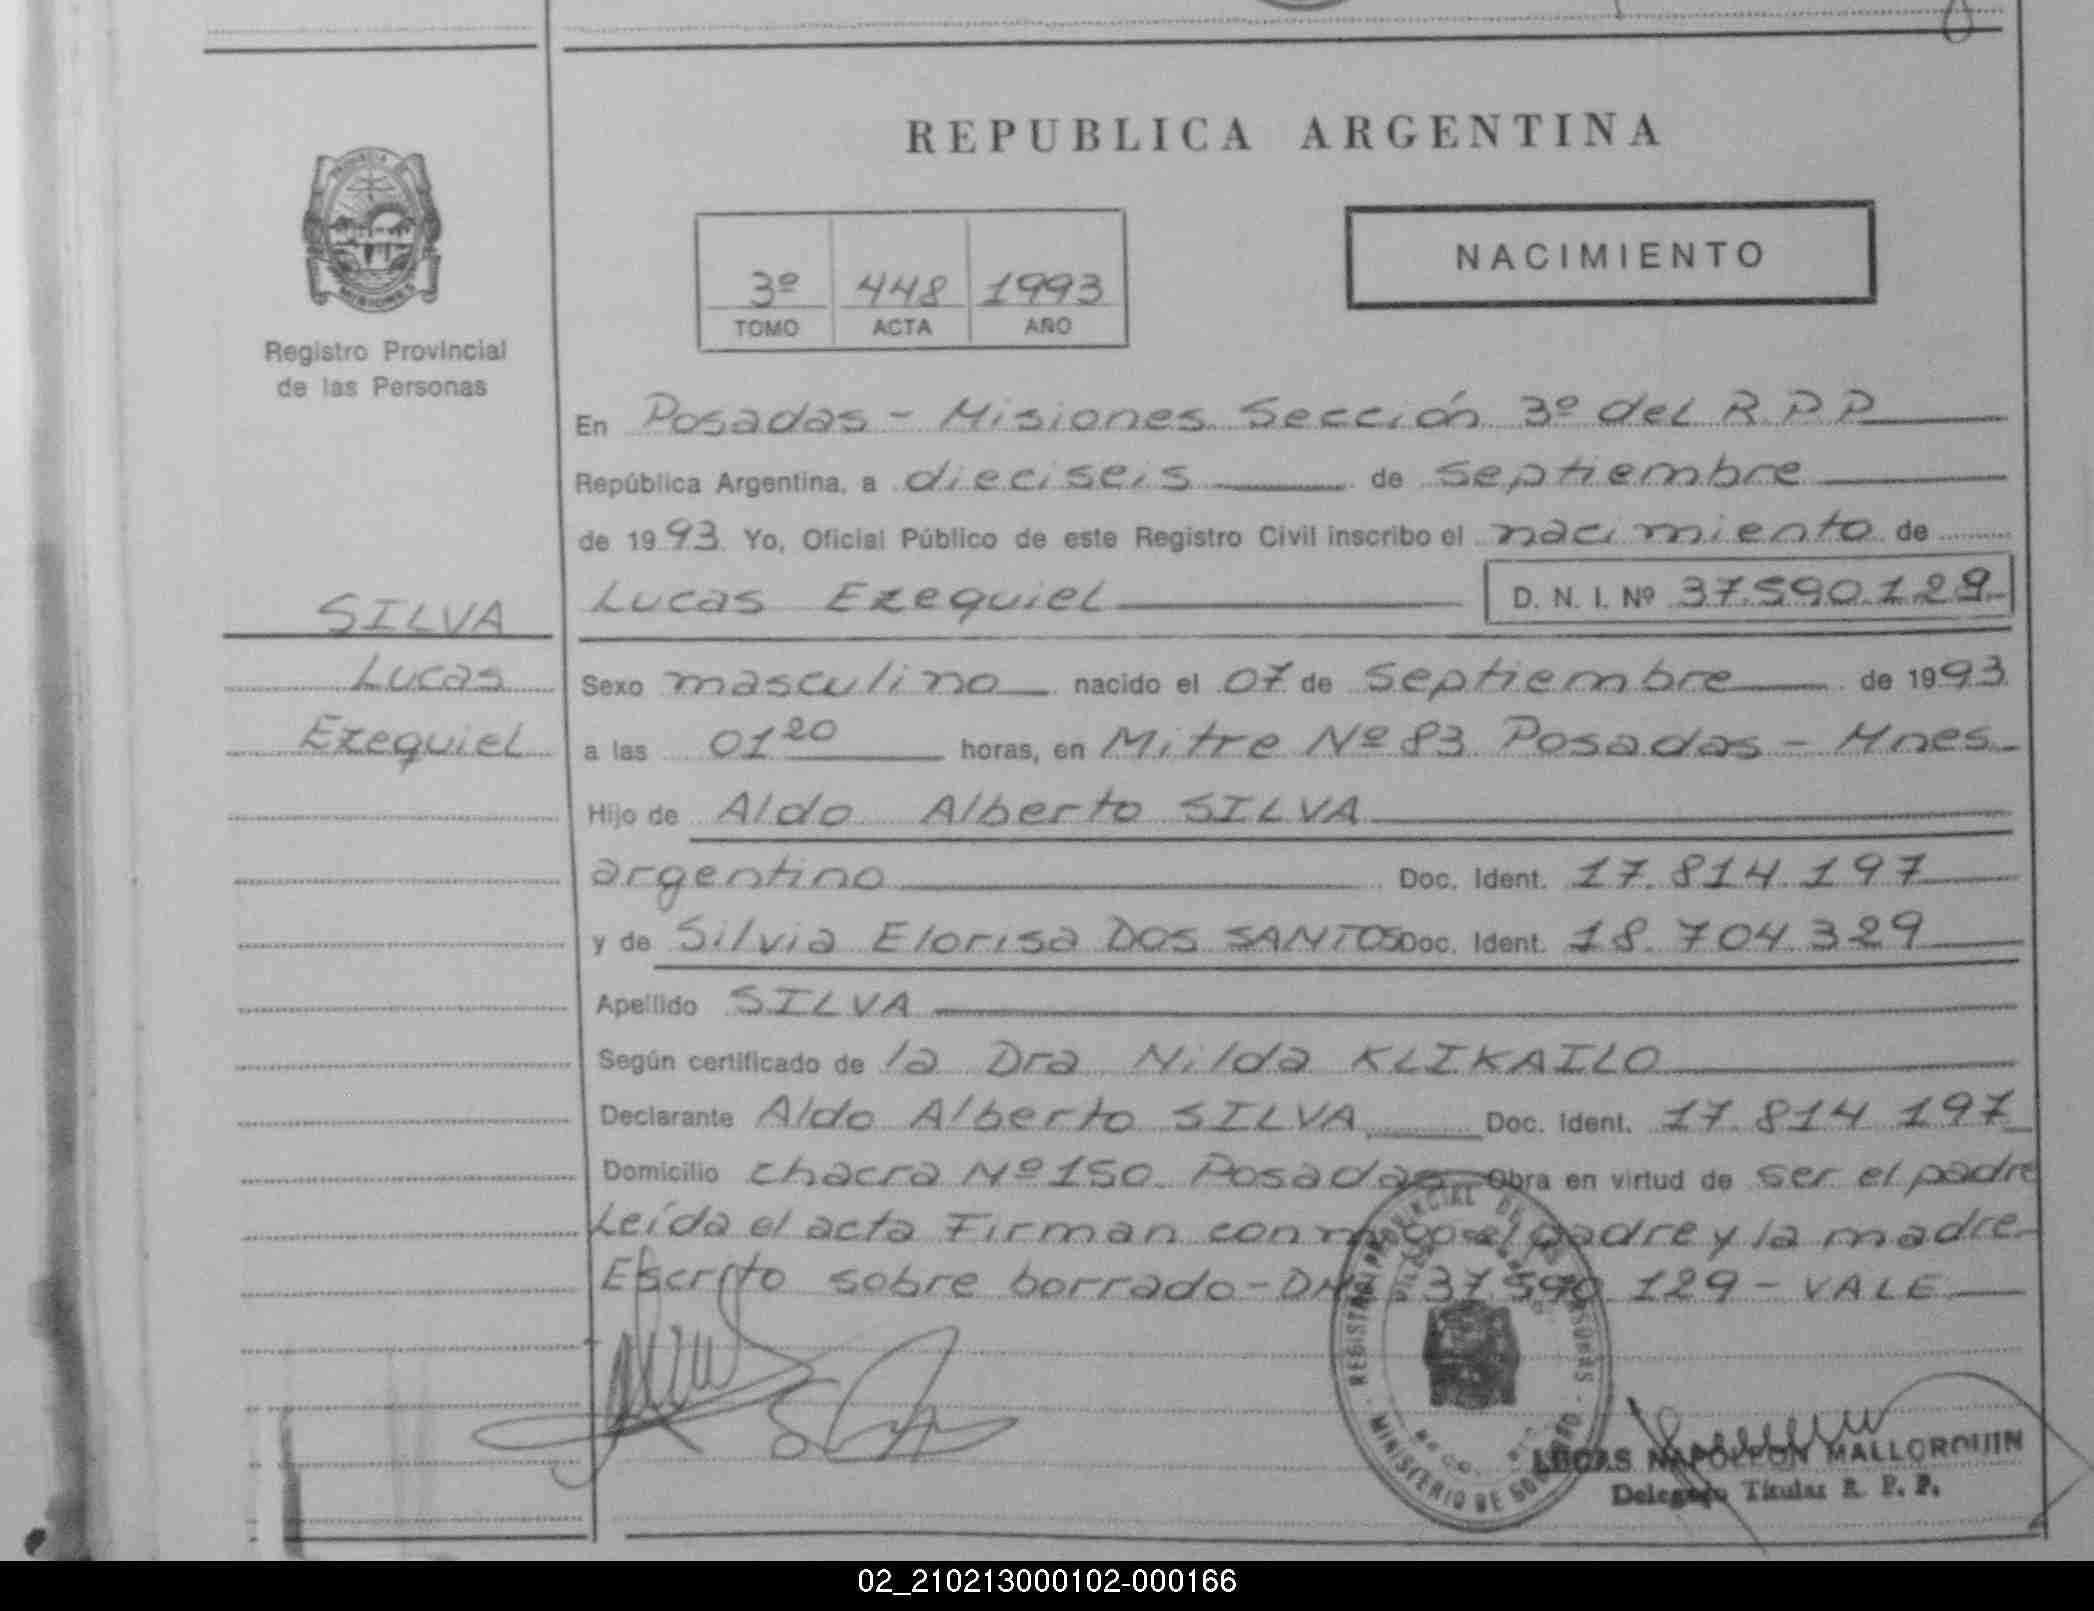 REPUBLICA ARGENTINA
NACIMIENTO
3º 448 1993
TOMO ACTA AÑO
MISIONES
Registro Provincial
de las Personas
SILVA
Lucas
Ezequiel
En Posadas - Misiones Sección 3º del R.P.P.
República Argentina, a dieciseis de septiembre
de 1993 Yo, Oficial Público de este Registro Civil inscribo el nacimiento de
Lucas Ezequiel D. N. I. Nº 37.590.129
Sexo masculino nacido el 07 de septiembre de 1993
a las 01 20 horas, en Mitre Nº 83 Posadas - Mnes
Hijo de Aldo Alberto SILVA
argentino Doc. Ident. 17.814.197
y de Silvia Elorisa DOS SANTOS Doc. Ident. 18.704.329
Apellido SILVA
Según certificado de la Dra Nilda KLIKAILO
Declarante Aldo Alberto SILVA Doc. Ident. 17.814.197
Domicilio chacra Nº 150 Posadas Obra en virtud de ser el padre
Leída el acta Firman con el padre y la madre
Escrito sobre borrado - 37.590.129 - VALE
MINISTERIO DE
LUCAS NAPOLEON MALLORQUIN
Delegado Titular R. P. P.
02_210213000102-000166